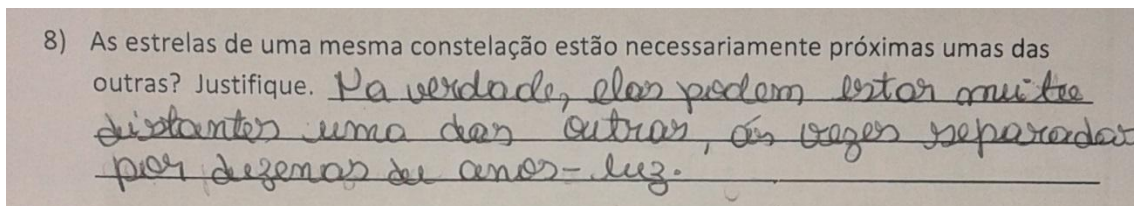 8) As estrelas de uma mesma constelação estão necessariamente próximas umas das
outras? Justifique. Na verdade, elas podem estar muito
distantes uma das outras, ás vezes separadas
por dezenas de anos-luz.